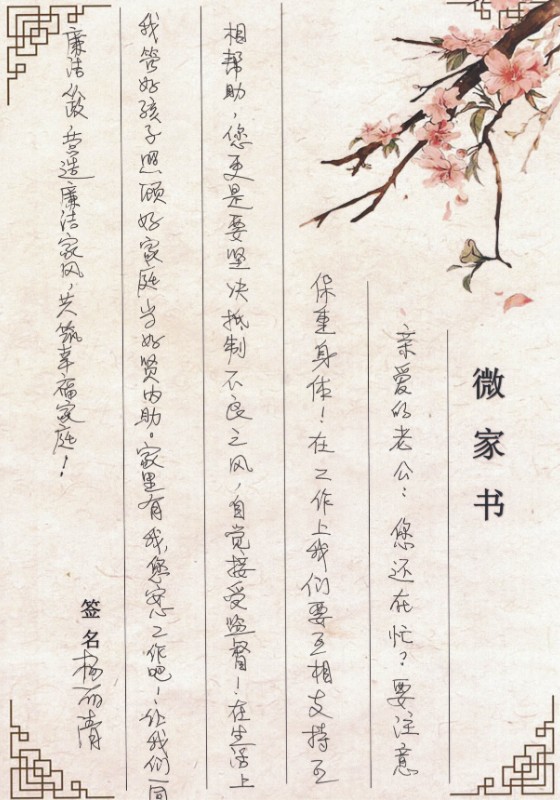 微家书
亲爱的老公：您还在忙？要注意
保重身体！在工作上我们要互相支持互
相帮助，您更是要坚决抵制不良之风，自觉接受监督！在生活上
我管好孩子照顾好家庭当好贤内助。家里有我，您安心工作吧！让我们一同
廉洁从政营造廉洁家风，共筑幸福家庭！
签名